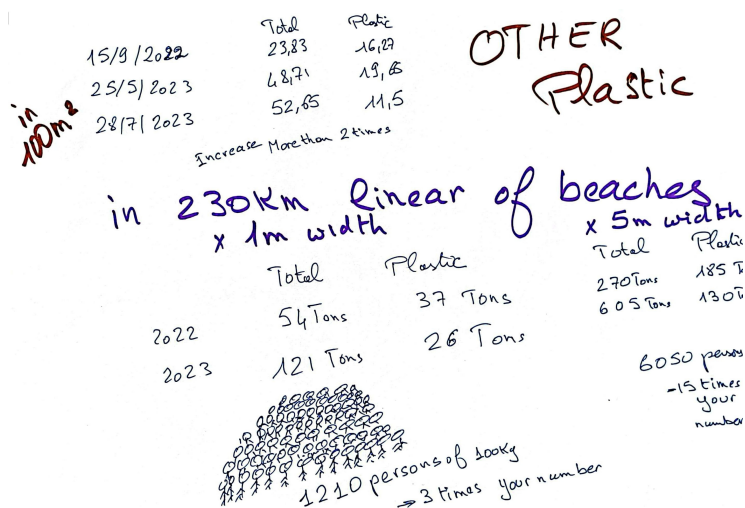 Total Plastic
15/9/2022 23,83 16,27
25/5/2023 48,71 19,65
28/7/2023 52,65 11,5
in
100m²
Increase More than 2 times
OTHER
Plastic
in 230Km linear of beaches
x 1m width
x 5m width
Total Plastic
2022 54 Tons 37 Tons
2023 121 Tons 26 Tons
Total Plastic
270 Tons 185 T
605 Tons 130 T
1210 persons of 100kg
→ 3 times your number
6050 persons
15 times
your
number